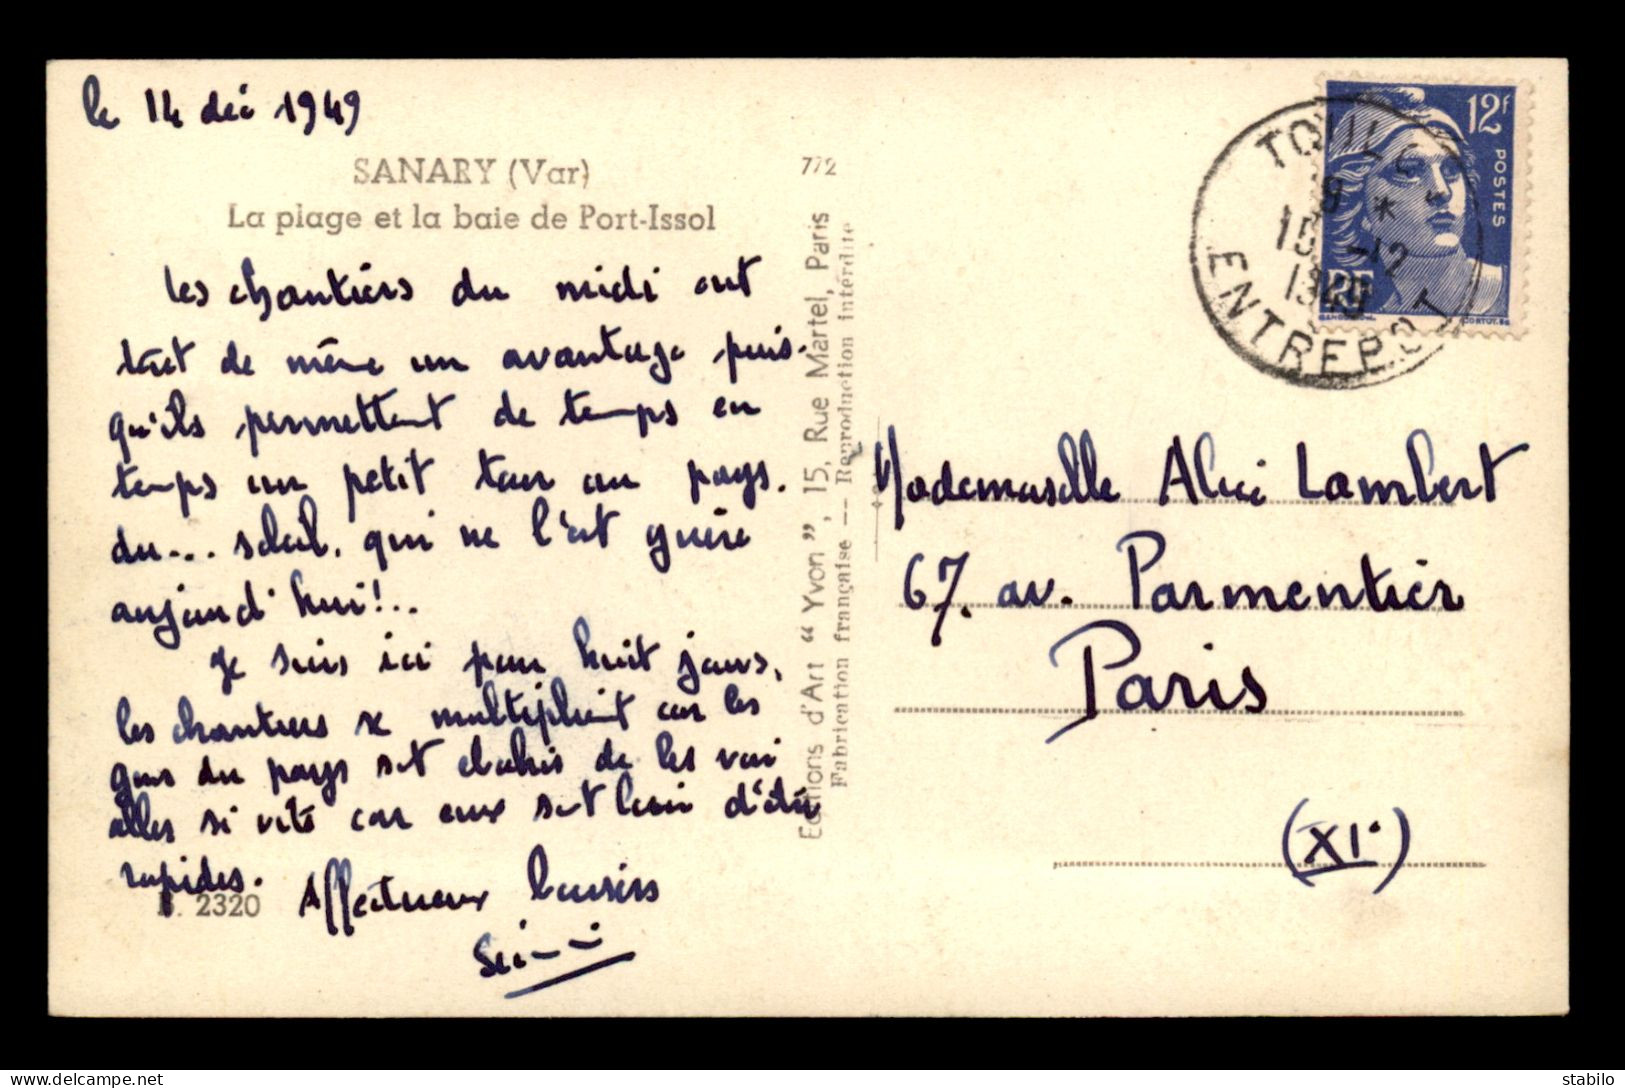 le 14 déc 1949
SANARY (Var)
La plage et la baie de Port-Issol
772
les chantiers du midi ont
tout de même un avantage puis-
qu'ils permettent de temps en
temps un petit tour au pays.
du... soleil. qui ne l'est guère
aujourd'hui!..
Je suis ici pour huit jours,
les chantiers se multiplient car les
gens du pays sont ébahis de les voir
aller si vite car eux sont loin d'être
rapides.
Affectueux baisers
2320
Editions d'Art "Yvon", 15, Rue Martel, Paris
Fabrication française -- Reproduction interdite
12F
POSTES
RF
TOULON
ENTREPOT
15 -12
1949
Mademoiselle Alice Lambert
67. av. Parmentier
Paris
(XIe)
stabilo